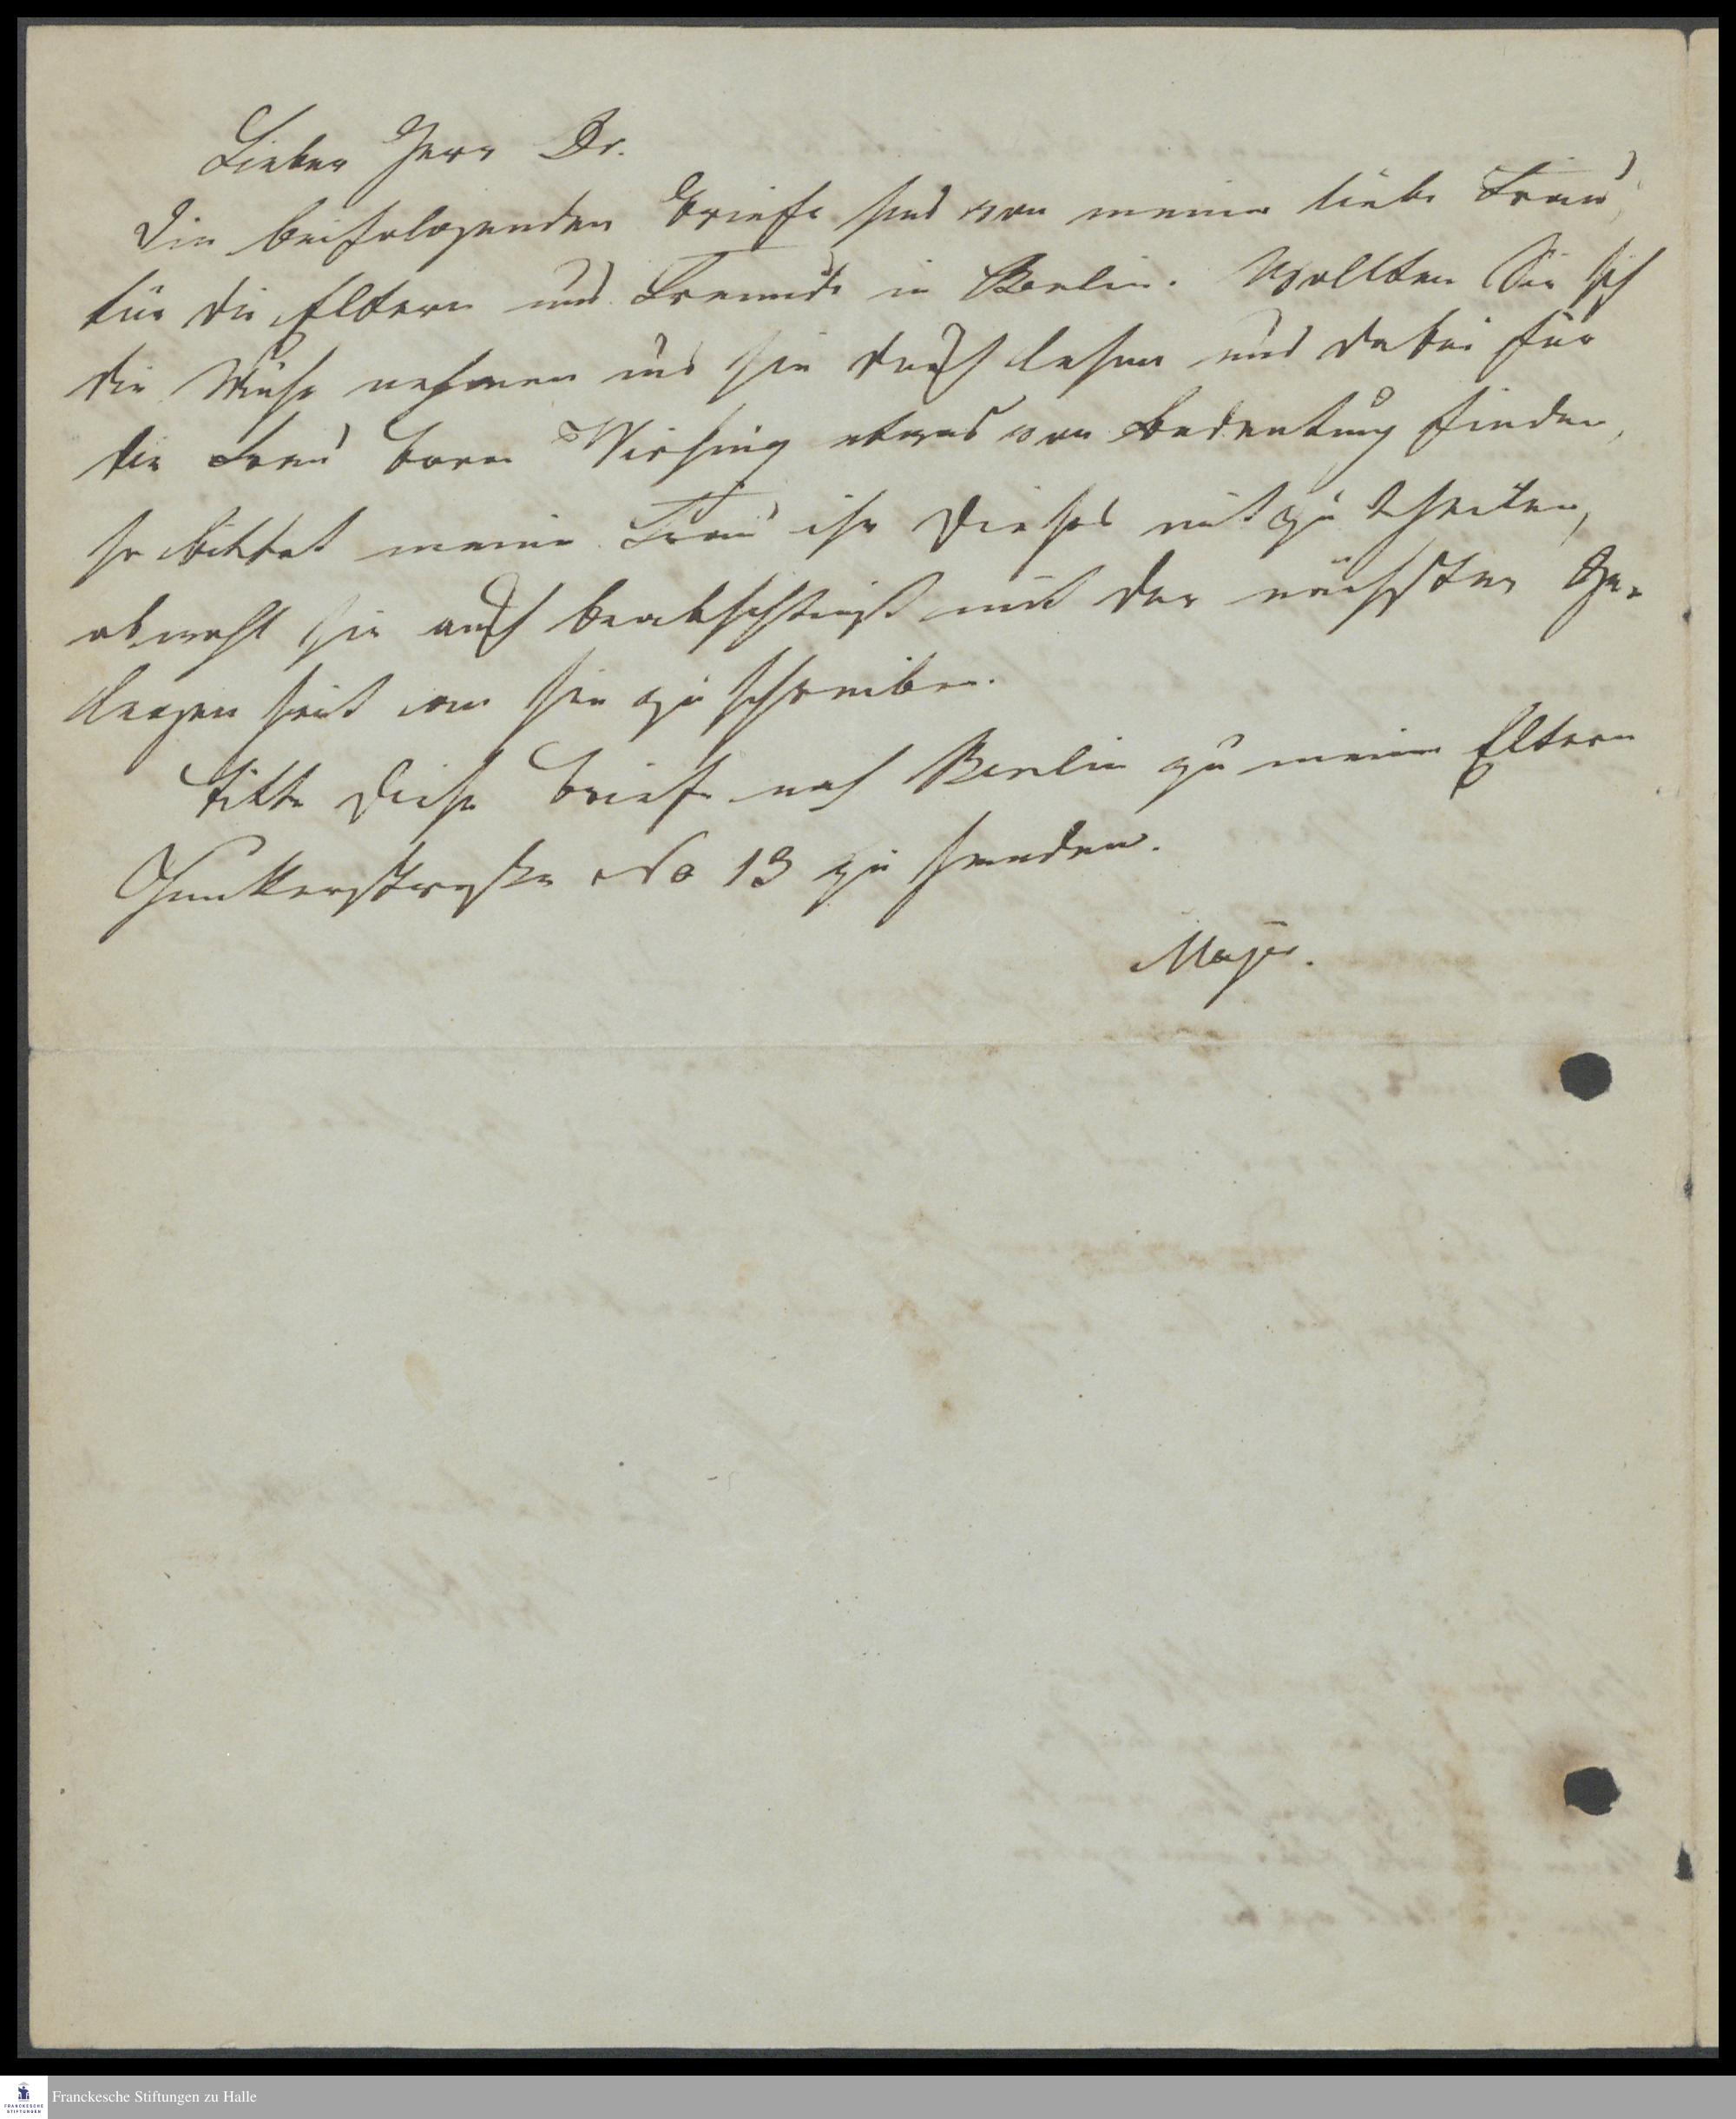 Lieber Herr Dr.
Die beifolgenden Briefe sind von meiner liebe Frau,
für die Eltern und Freunde in Berlin. Wollten Sie sich
die Mühe nehmen und sie durch lesen und dabei für
die Frau Baron Wirsing etwas von Bedeutung finden,
so bittet meine Frau ihr dieses mit zu theilen,
obwohl sie auch beabsichtigt mit der nächsten Ge-
legen heit an sie zu schreiben.
Bitte diese Briefe nach Berlin zu meinen Eltern
Junkerstraße No 13 zu senden.
Franckesche Stiftungen zu Halle
FRANCKESCHE
STIFTUNGEN